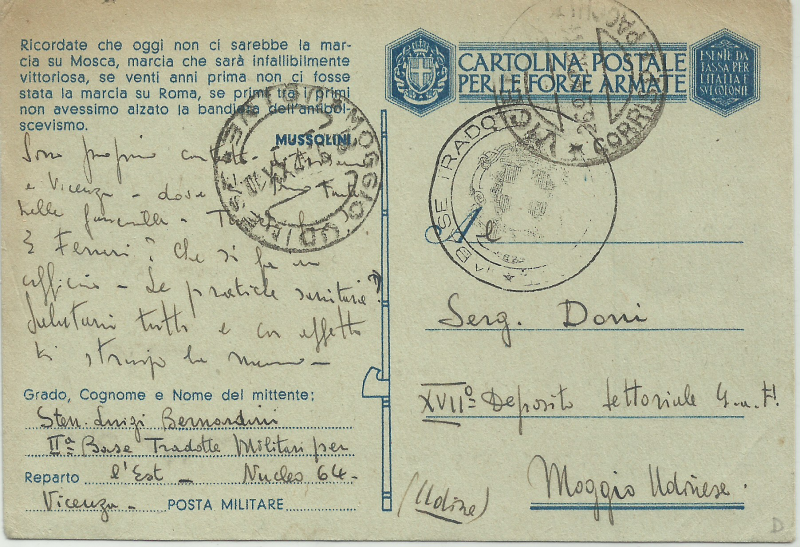 Ricordate che oggi non ci sarebbe la mar-
cia su Mosca, marcia che sarà infallibilmente
vittoriosa, se venti anni prima non ci fosse
stata la marcia su Roma, se primi tra i primi
non avessimo alzato la bandiera dell'antibol-
scevismo.
MUSSOLINI
Sono proprio
e Vicenza - dove
nelle
? Che si fa in
ufficio - Le pratiche sanitarie?
Salutami tutti e con affetto
ti stringo la mano -
Grado, Cognome e Nome del mittente:
Sten. Luigi Bernardini
IIª Base Tradotte Militari per
Reparto l'Est - Nucleo 64 -
Vicenza - POSTA MILITARE
CARTOLINA POSTALE
PER LE FORZE ARMATE
ESENTE DA
TASSA PER
L'ITALIA E
SVE COLONIE
MOGGIO UDINESE
BASE TRADOT
CORRI
Al
Serg. Doni
XVII° Deposito Settoriale G.a.F.
Moggio Udinese.
(Udine)
D